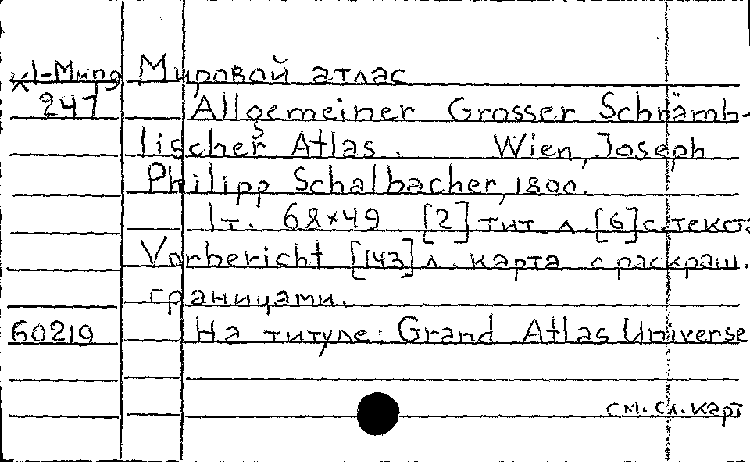 к1-Мирд Мировой атлас
247 Allgemeiner Grosser Schrämb-
lischer Atlas. Wien, Joseph
Philipp Schalbacher, 1800.
1т. 68×49 [2] тит. л. [6] с. текста
Vorbericht [143] л. карта с раскраш.
границами.
60210 На титуле: Grand Atlas Universe
см. сл. карт